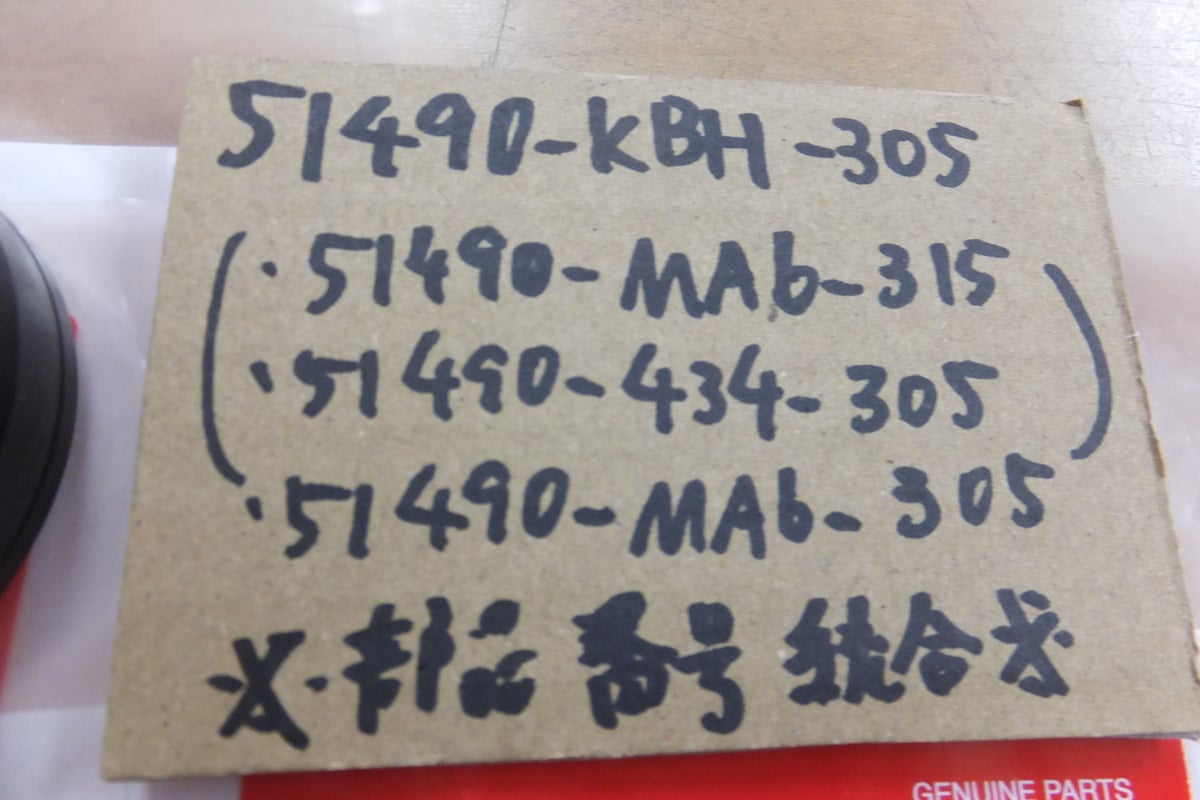 51490-KBH-305
(・51490-MA6-315
・51490-434-305
・51490-MA6-305)
※部品番号統合※
GENUINE PARTS